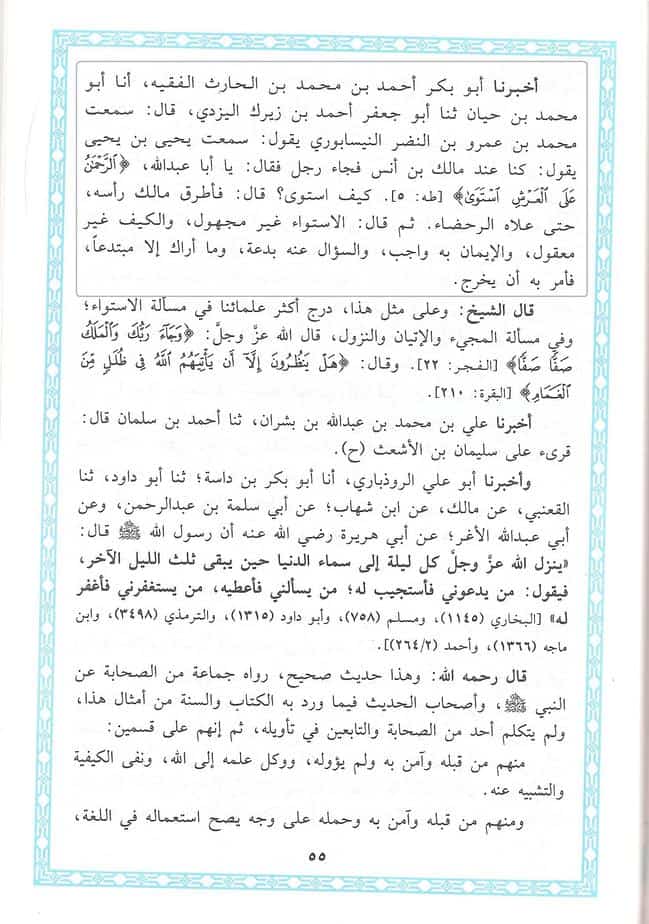 أخبرنا أبو بكر أحمد بن محمد بن الحارث الفقيه، أنا أبو
محمد بن حيان ثنا أبو جعفر أحمد بن زيرك اليزدي، قال: سمعت
محمد بن عمرو بن النضر النيسابوري يقول: سمعت يحيى بن يحيى
يقول: كنا عند مالك بن أنس فجاء رجل فقال: يا أبا عبدالله، ﴿ٱلرَّحْمَٰنُ
عَلَى ٱلْعَرْشِ ٱسْتَوَىٰ﴾ [طه: ٥]. كيف استوى؟ قال: فأطرق مالك رأسه،
حتى علاه الرحضاء. ثم قال: الاستواء غير مجهول، والكيف غير
معقول، والإيمان به واجب، والسؤال عنه بدعة، وما أراك إلا مبتدعاً،
فأمر به أن يخرج.
قال الشيخ: وعلى مثل هذا، درج أكثر علمائنا في مسألة الاستواء؛
وفي مسألة المجيء والإتيان والنزول، قال الله عزَّ وجلَّ: ﴿وَجَآءَ رَبُّكَ وَٱلْمَلَكُ
صَفًّا صَفًّا﴾ [الفجر: ٢٢]. وقال: ﴿هَلْ يَنظُرُونَ إِلَّآ أَن يَأْتِيَهُمُ ٱللَّهُ فِى ظُلَلٍ مِّنَ
ٱلْغَمَامِ﴾ [البقرة: ٢١٠].
أخبرنا علي بن محمد بن عبدالله بن بشران، ثنا أحمد بن سلمان قال:
قرىء على سليمان بن الأشعث (ح).
وأخبرنا أبو علي الروذباري، أنا أبو بكر بن داسة؛ ثنا أبو داود، ثنا
القعنبي، عن مالك، عن ابن شهاب؛ عن أبي سلمة بن عبدالرحمن، وعن
أبي عبدالله الأغر؛ عن أبي هريرة رضي الله عنه أن رسول الله ﷺ قال:
«ينزل الله عزَّ وجلَّ كل ليلة إلى سماء الدنيا حين يبقى ثلث الليل الآخر،
فيقول: من يدعوني فأستجيب له؛ من يسألني فأعطيه، من يستغفرني فأغفر
له» [البخاري (١١٤٥)، ومسلم (٧٥٨)، وأبو داود (١٣١٥)، والترمذي (٣٤٩٨)، وابن
ماجه (١٣٦٦)، وأحمد (٢٦٤/٢)].
قال رحمه الله: وهذا حديث صحيح، رواه جماعة من الصحابة عن
النبي ﷺ، وأصحاب الحديث فيما ورد به الكتاب والسنة من أمثال هذا،
ولم يتكلم أحد من الصحابة والتابعين في تأويله، ثم إنهم على قسمين:
منهم من قبله وآمن به ولم يؤوله، ووكل علمه إلى الله، ونفى الكيفية
والتشبيه عنه.
ومنهم من قبله وآمن به وحمله على وجه يصح استعماله في اللغة،
٥٥